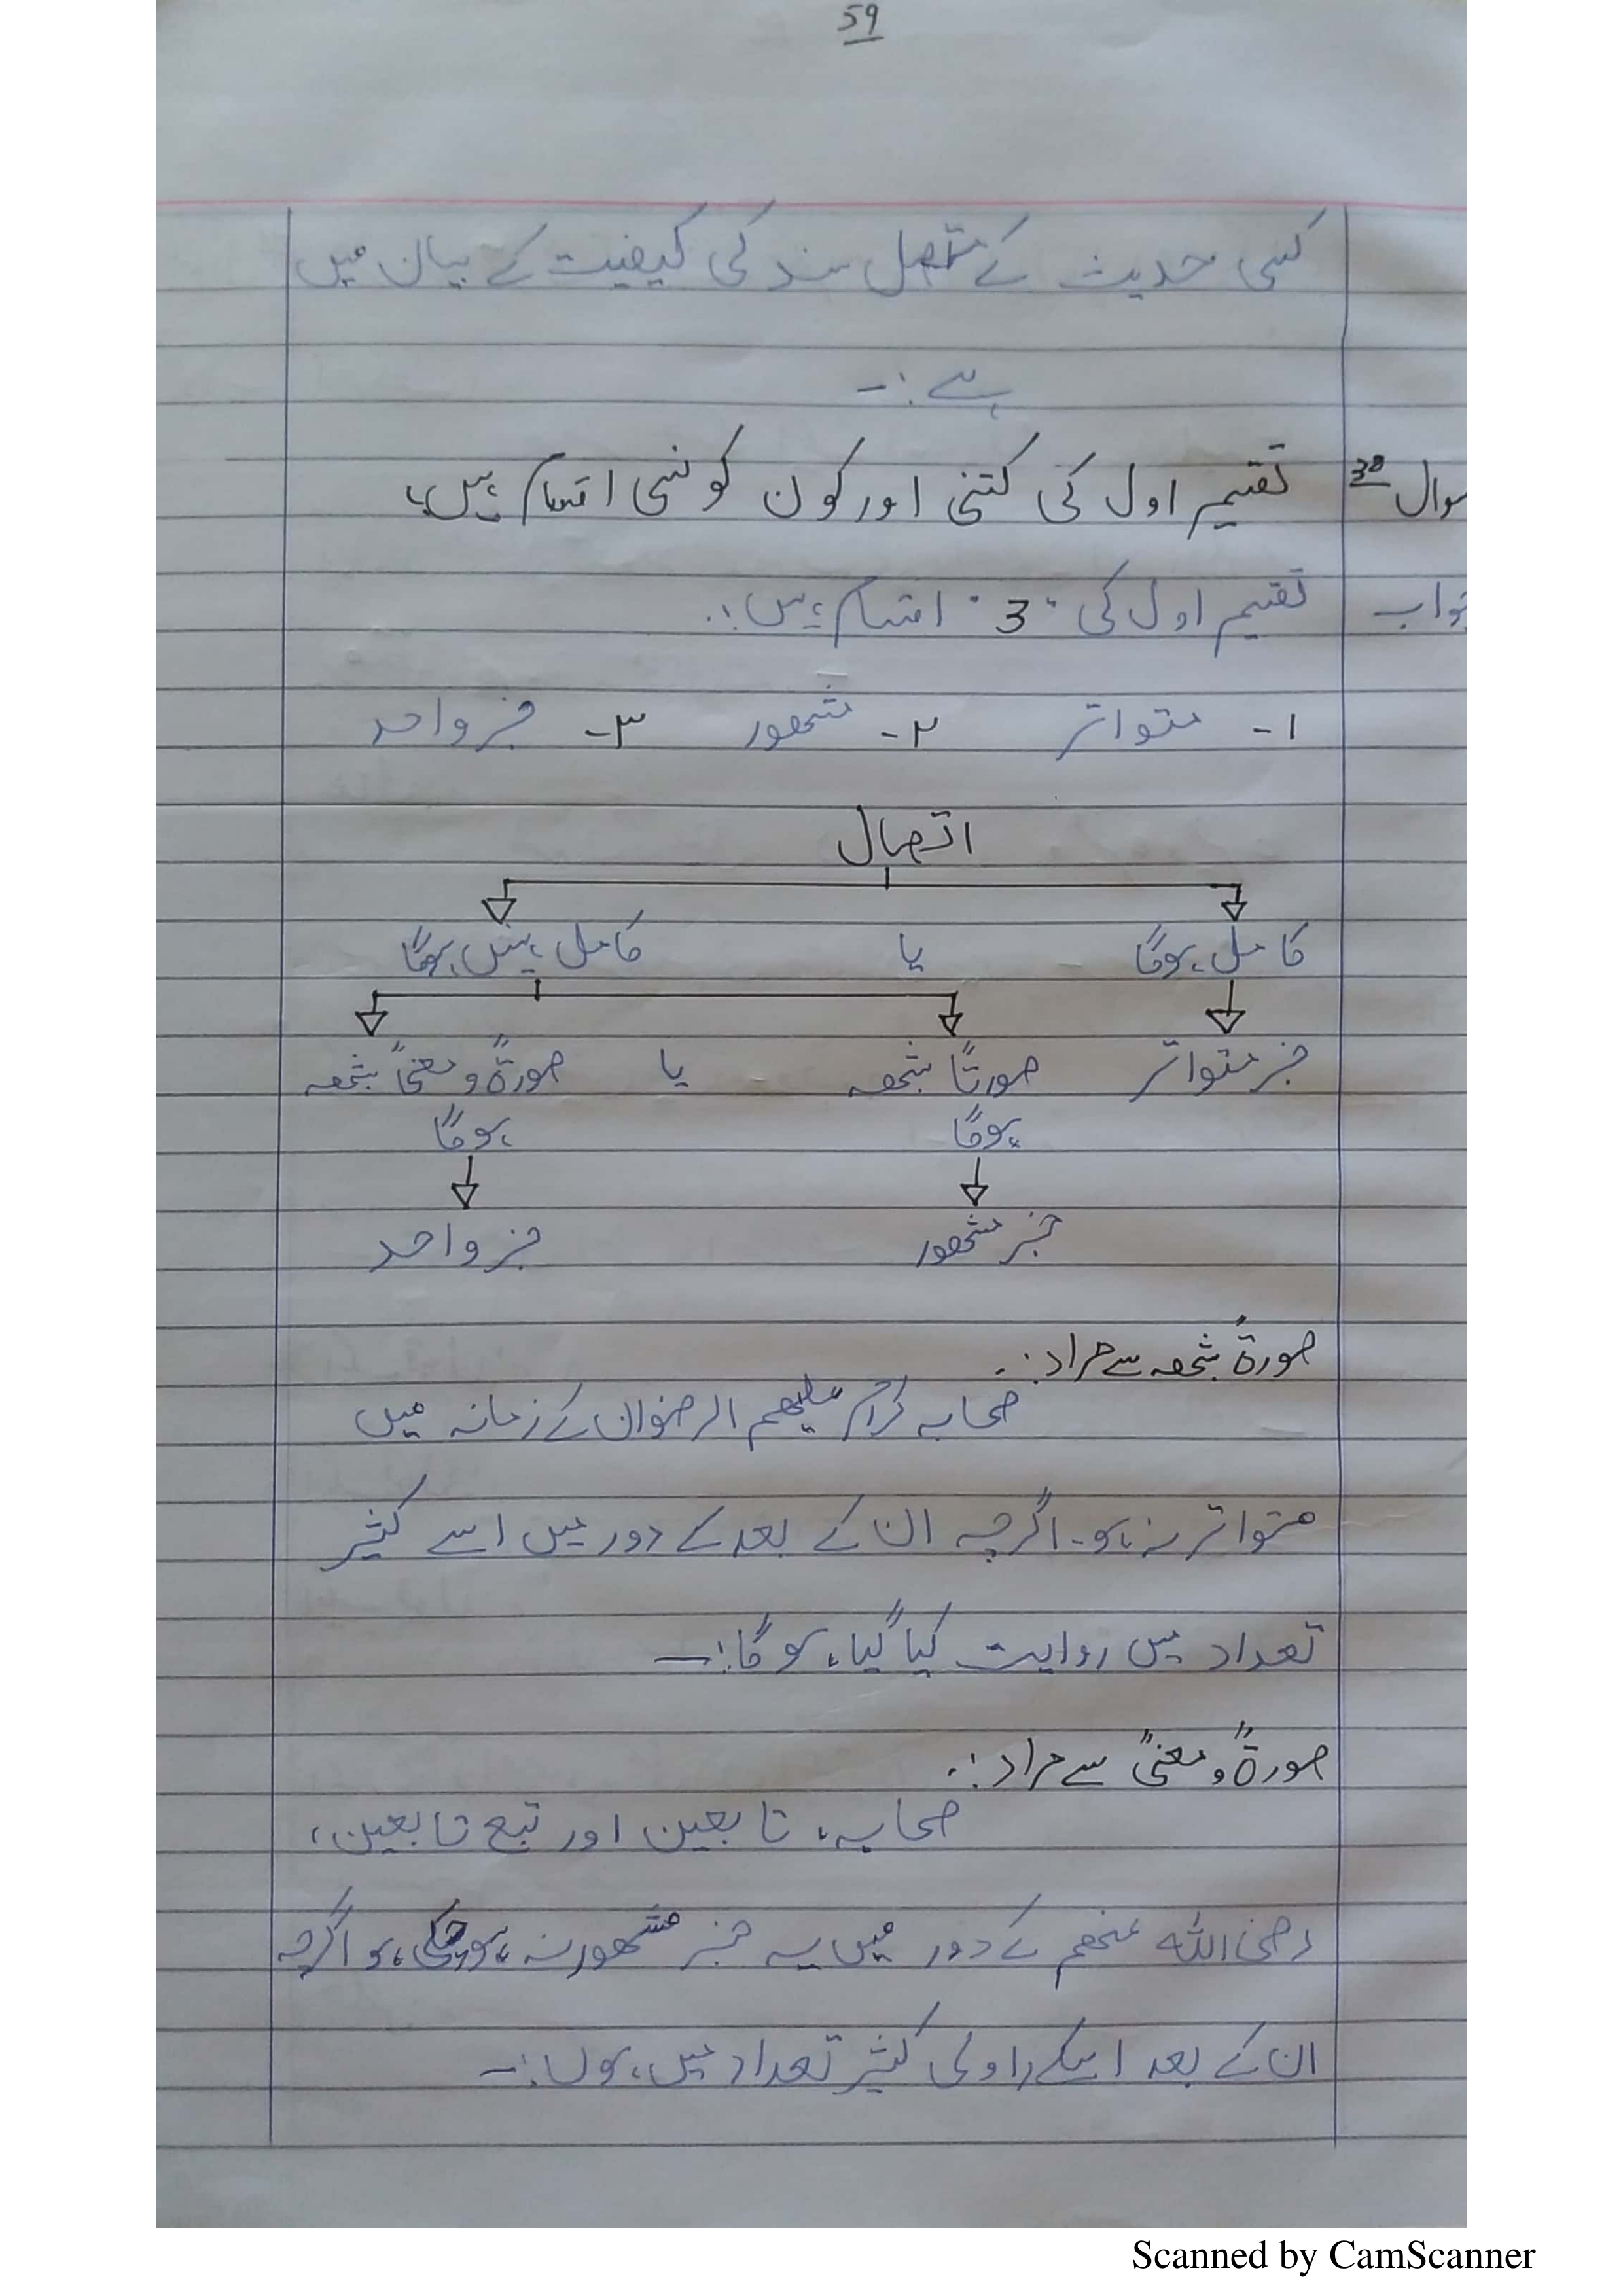 59
کسی حدیث کے متصل سند کی کیفیت کے بیان میں
ہے :-
سوال 38 تقسیم اول کی کتنی اور کون کونسی اقسام ہیں،
جواب تقسیم اول کی "3" اقسام ہیں:.
۱- متواتر ۲- مشھور ۳- خبر واحد
اتصال
کامل ہوگا یا کامل نہیں ہوگا
خبر متواتر صورتاً شبھہ یا صورۃً و معنیً شبھہ
ہوگا ہوگا
خبر مشھور خبر واحد
صورۃً شبھہ سے مراد:.
صحابہ کرام علیھم الرضوان کے زمانہ میں
متواتر نہ ہو۔ اگرچہ ان کے بعد کے دور میں اسے کثیر
تعداد میں روایت کیا گیا ہوگا:-
صورۃً و معنیً سے مراد:.
صحابہ، تابعین اور تبع تابعین،
رضی اللہ عنھم کے دور میں یہ خبر مشھور نہ ہو چکی ہو اگرچہ
ان کے بعد اسکے راوی کثیر تعداد میں ہوں:-
Scanned by CamScanner